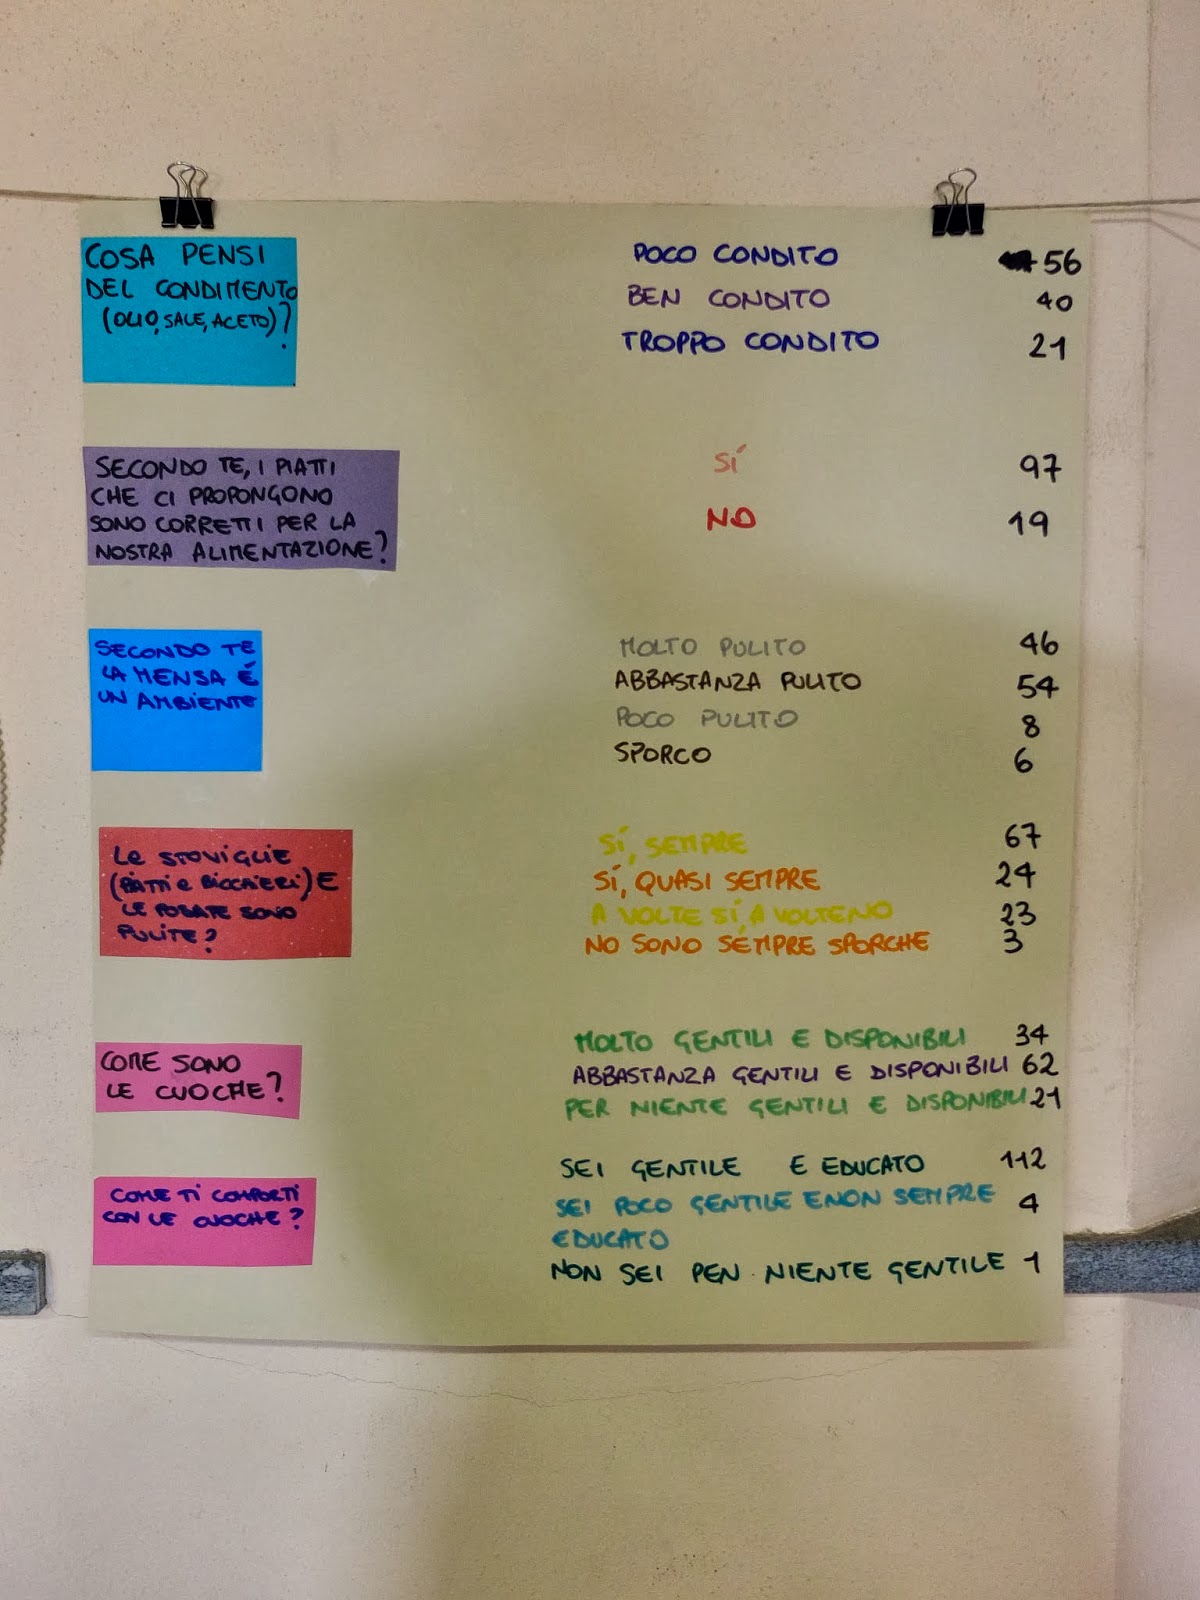 COSA PENSI
DEL CONDIMENTO
(OLIO, SALE, ACETO)?
POCO CONDITO 56
BEN CONDITO 40
TROPPO CONDITO 21
SECONDO TE, I PIATTI
CHE CI PROPONGONO
SONO CORRETTI PER LA
NOSTRA ALIMENTAZIONE?
SÍ 97
NO 19
SECONDO TE
LA MENSA É
UN AMBIENTE
MOLTO PULITO 46
ABBASTANZA PULITO 54
POCO PULITO 8
SPORCO 6
LE STOVIGLIE
(PIATTI E BICCHIERI) E
LE POSATE SONO
PULITE?
SÍ, SEMPRE 67
SÍ, QUASI SEMPRE 24
A VOLTE SÍ, A VOLTE NO 23
NO SONO SEMPRE SPORCHE 3
COME SONO
LE CUOCHE?
MOLTO GENTILI E DISPONIBILI 34
ABBASTANZA GENTILI E DISPONIBILI 62
PER NIENTE GENTILI E DISPONIBILI 21
COME TI COMPORTI
CON LE CUOCHE?
SEI GENTILE E EDUCATO 112
SEI POCO GENTILE E NON SEMPRE 4
EDUCATO
NON SEI PEN NIENTE GENTILE 1